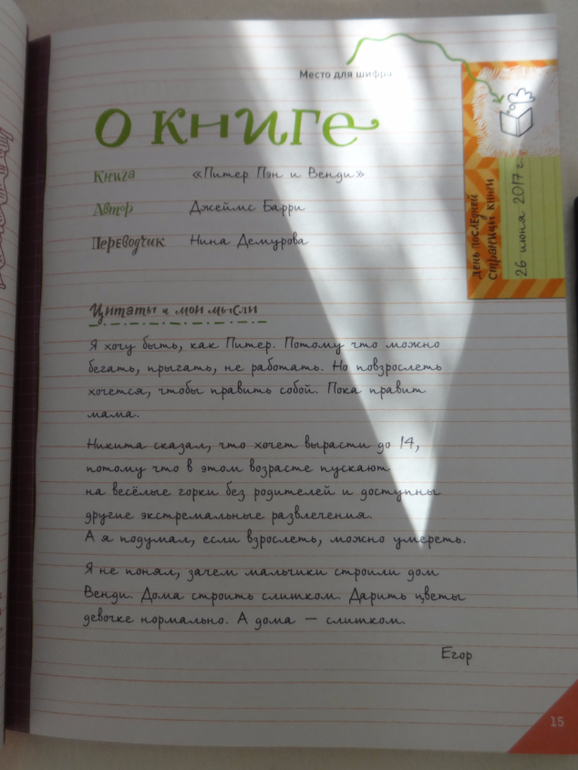 Место для шифра
о книге
Книга «Питер Пэн и Венди»
Автор Джеймс Барри
Переводчик Нина Демурова
День последней
страницы книги
26 июня 2017 г.
Цитаты и мои мысли
Я хочу быть, как Питер. Потому что можно
бегать, прыгать, не работать. Но повзрослеть
хочется, чтобы править собой. Пока правит
мама.
Никита сказал, что хочет вырасти до 14,
потому что в этом возрасте пускают
на весёлые горки без родителей и доступны
другие экстремальные развлечения.
А я подумал, если взрослеть, можно умереть.
Я не понял, зачем мальчики строили дом
Венди. Дома строить слишком. Дарить цветы
девочке нормально. А дома — слишком.
Егор
15